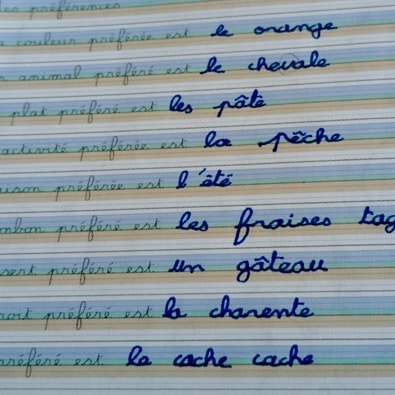 les préférences
couleur préférée est le orange
animal préféré est le chevale
plat préféré est les pâte
activité préférée est la pêche
préférée est l'été
préféré est les fraises tag
préféré est un gâteau
préféré est la charente
préféré est la cache cache